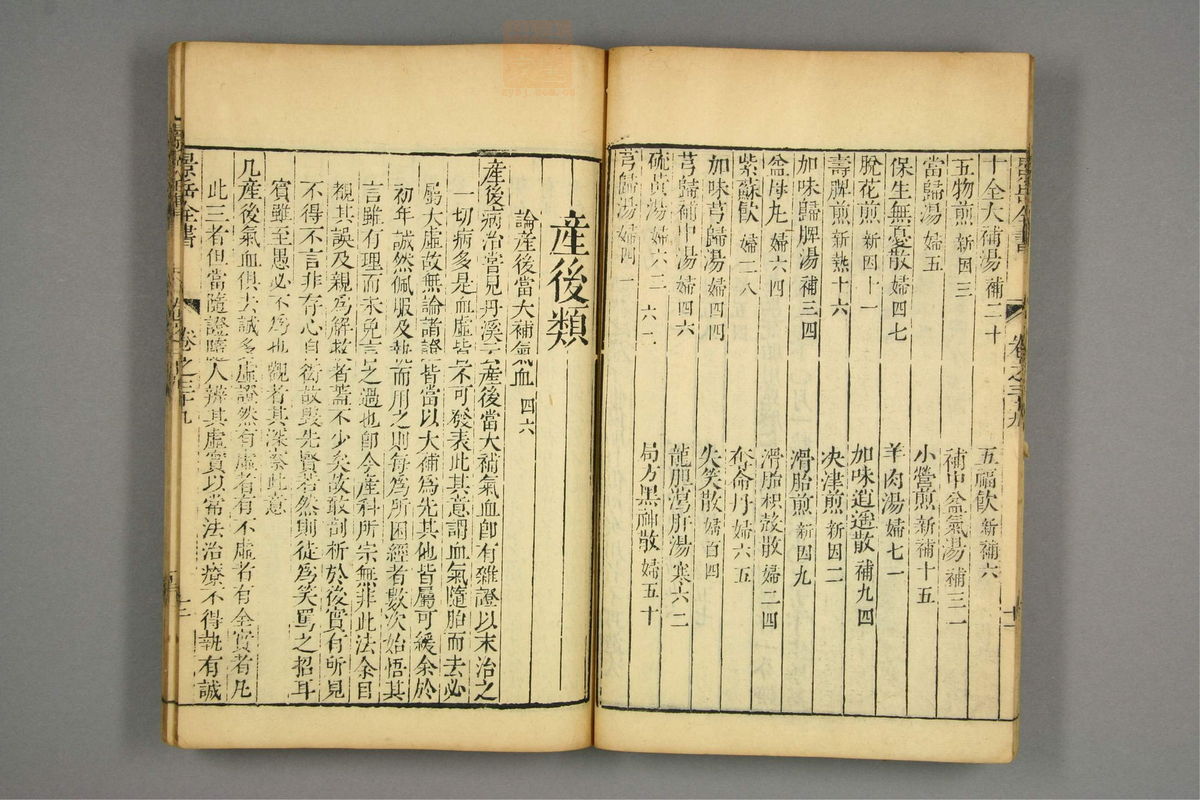 景岳全書 卷之三十九
十全大補湯 補二十 五福飲 新補六
五物煎 新因三 補中益氣湯 補三一
當歸湯 婦五 小營煎 新補十五
保生無憂散 婦四七 羊肉湯 婦七一
脫花煎 新因十一 加味逍遙散 補九四
壽脾煎 新熱十六 决津煎 新因二
加味歸脾湯 補三四 滑胎煎 新因九
益母丸 婦六四 滑胎枳殼散 婦二四
紫蘇飲 婦二八 奪命丹 婦六五
加味芎歸湯 婦四四 失笑散 婦百四
芎歸補中湯 婦四六 龍膽瀉肝湯 寒六三
硫黃湯 婦六三 局方黑神散 婦五十
芎歸湯 婦四一
産後類
論産後當大補氣血 四六
産後病治嘗見丹溪云産後當大補氣血卽有雜證以末治之
一切病多是血虛皆不可發表此其意謂血氣隨胎而去必
屬大虛故無論諸證皆當以大補爲先其他皆屬可緩余於
初年誠然佩服及執而用之則每爲所困經者數次始悟其
言雖有理而未免言之過也卽今産科所宗無非此法余目
覩其誤及親爲解救者蓋不少矣故敢剖析於後實有所見
不得不言非存心自衒故毀先賢若然則徒爲笑罵之招耳
賓雖至愚必不爲也觀者其深察此意
凡産後氣血俱去誠多虛證然有虛者有不虛者有全實者凡
此三者但當隨證隨人辨其虛實以常法治療不得執有誠
景岳全書 卷之三十九